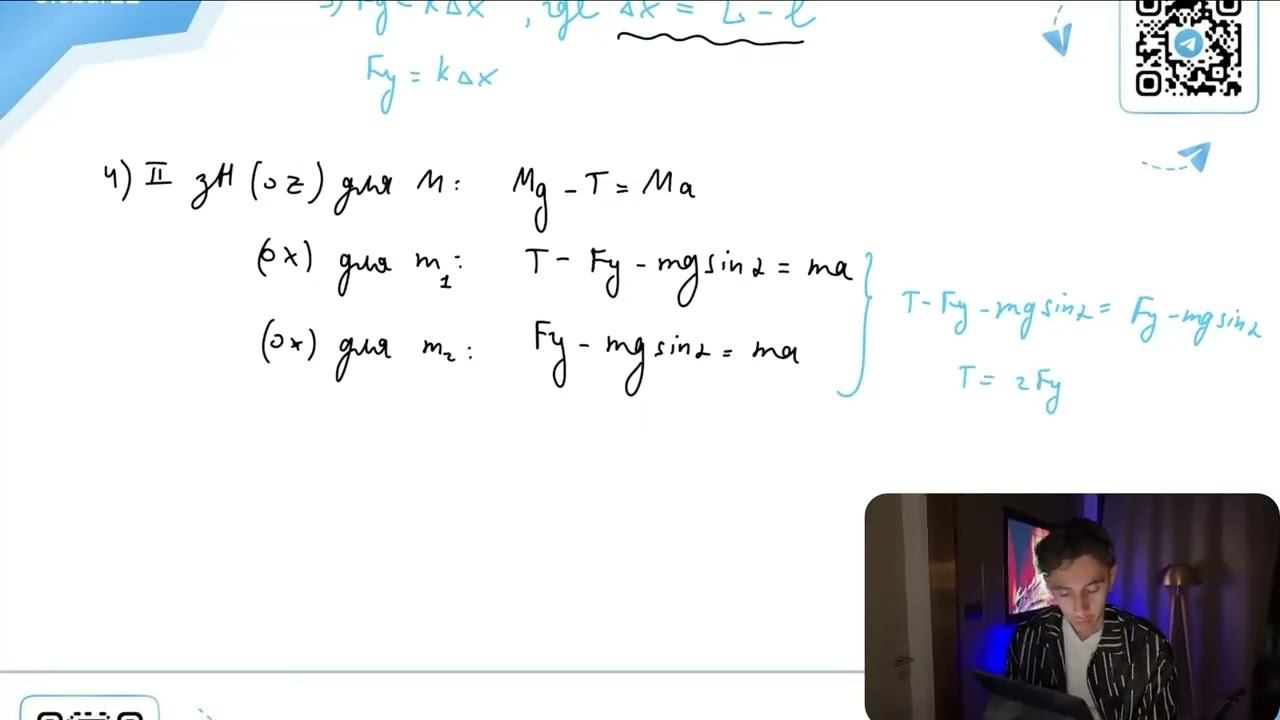 3) Fy = kΔx , где Δx = L - l
Fy = kΔx
4) II зН (oz) для M: Mg - T = Ma
(ox) для m₁: T - Fy - mg sin α = ma
(ox) для m₂: Fy - mg sin α = ma
T - Fy - mg sin α = Fy - mg sin α
T = 2Fy